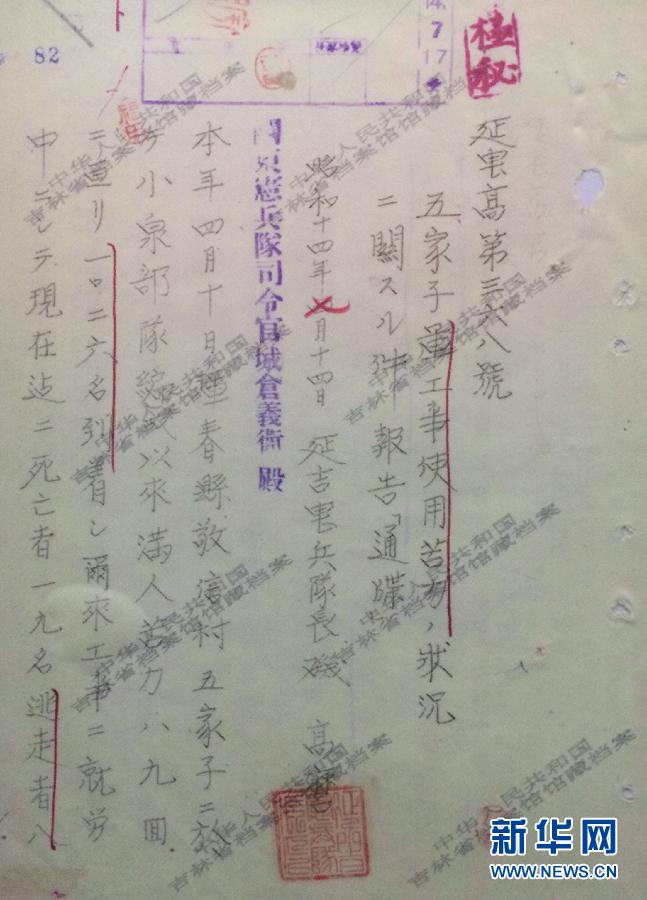 極秘
4.7
17
82
延憲高第三六八號
五家子軍工事使用苦力ノ狀況
ニ關スル件報告「通牒」
昭和十四年七月十四日 延吉憲兵隊長 磯 高麿
關東憲兵隊司令官城倉義衛 殿
本年四月十日琿春縣敬信村五家子ニ於
ケル小泉部隊 以來滿人苦力八九回
ニ亘リ一〇二六名到着シ爾來工事ニ就労
中ニシテ現在迠ニ死亡者一九名逃走者八
中华人民共和国
吉林省档案馆馆藏档案
新华网
WWW.NEWS.CN